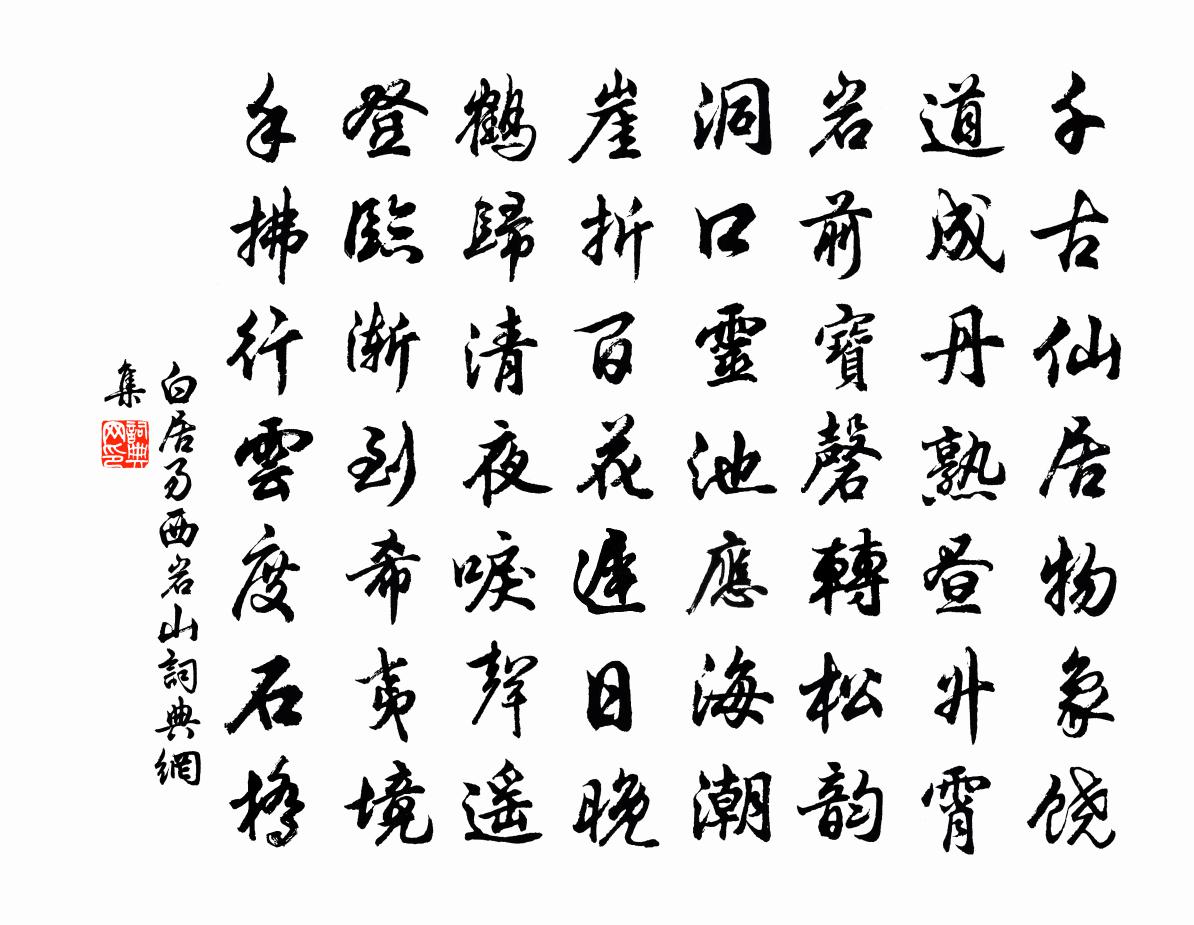 千古仙居物象饶
道成丹熟昼升霄
岩前寶磬轉松韵
洞口靈池應海潮
崖折百花遲日晚
鶴歸清夜唳聲遥
登臨渐到希夷境
手拂行雲度石橋
白居易西岩山詞典網
集
詞典
网印